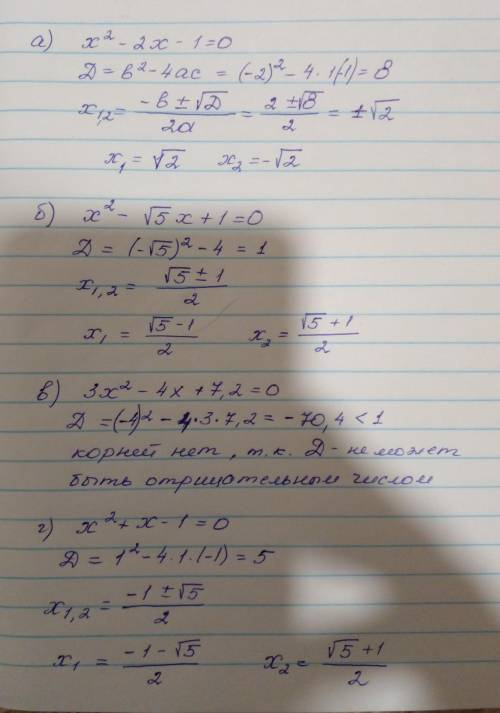 а) x² - 2x - 1 = 0
D = b² - 4ac = (-2)² - 4 · 1(-1) = 8
x₁,₂ = (-b ± √D)/2a = (2 ± √8)/2 = ± √2
x₁ = √2 x₂ = -√2
б) x² - √5 x + 1 = 0
D = (-√5)² - 4 = 1
x₁,₂ = (√5 ± 1)/2
x₁ = (√5 - 1)/2 x₂ = (√5 + 1)/2
в) 3x² - 4x + 7,2 = 0
D = (-4)² - 4 · 3 · 7,2 = - 70,4 < 1
корней нет, т.к. D - не может
быть отрицательным числом
г) x² + x - 1 = 0
D = 1² - 4 · 1 · (-1) = 5
x₁,₂ = (-1 ± √5)/2
x₁ = (-1 - √5)/2 x₂ = (√5 + 1)/2